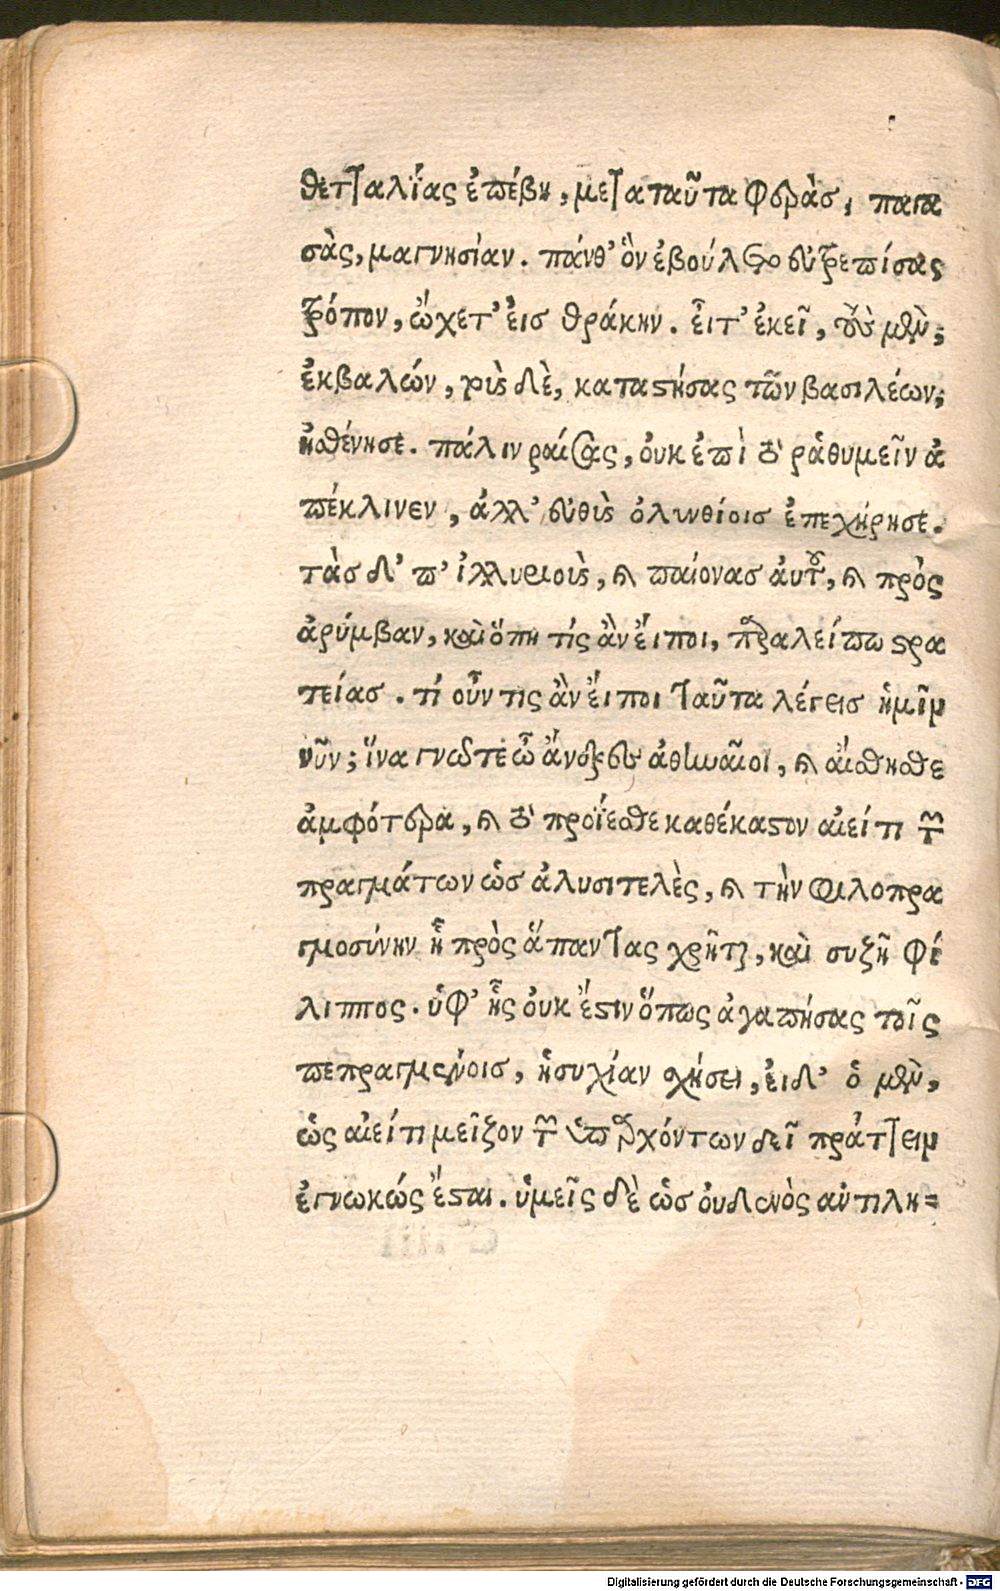 θετταλίας ἐπέβη, μετὰ ταῦτα φερὰς, παγα
σὰς, μαγνησίαν. πάνθ' ὃν ἐβούλετο εὐτρεπίσας
τρόπον, ᾤχετ' εἰς θράκην. εἶτ' ἐκεῖ, τοὺς μὲν,
ἐκβαλών, τοὺς δὲ, καταστήσας τῶν βασιλέων,
ἠσθένησε. πάλιν ραΐσας, οὐκ ἐπὶ τὸ ῥαθυμεῖν ἀ
πέκλινεν, ἀλλ' εὐθὺς ὀλυνθίοις ἐπεχείρησε.
τὰς δ' ἐπ' ἰλλυριοὺς, καὶ παίονας αὐτοῦ, καὶ πρὸς
ἀρύμβαν, καὶ ὅπη τίς ἂν εἴποι, παραλείπω στρα
τείας. τί οὖν τις ἂν εἴποι ταῦτα λέγεις ἡμῖν
νῦν; ἵνα γνῶτε ὦ ἄνδρες ἀθηναῖοι, καὶ αἴσθησθε
ἀμφότερα, καὶ τὸ προΐεσθε καθέκαστον αἰεί τι τῶν
πραγμάτων ὡς ἀλυσιτελὲς, καὶ τὴν φιλοπρα
γμοσύνην ἧ πρὸς ἅπαντας χρῆται, καὶ συζῆ φί
λιππος. ὑφ' ἧς οὐκ ἔστιν ὅπως ἀγαπήσας τοῖς
πεπραγμένοις, ἡσυχίαν σχήσει, εἰ δ' ὁ μὲν,
ὡς αἰεί τι μεῖζον τῶν ὑπαρχόντων δεῖ πράττειν
ἐγνωκώς ἔσται. ὑμεῖς δὲ ὡς οὐδενὸς ἀντιλη=
Digitalisierung gefördert durch die Deutsche Forschungsgemeinschaft - DFG